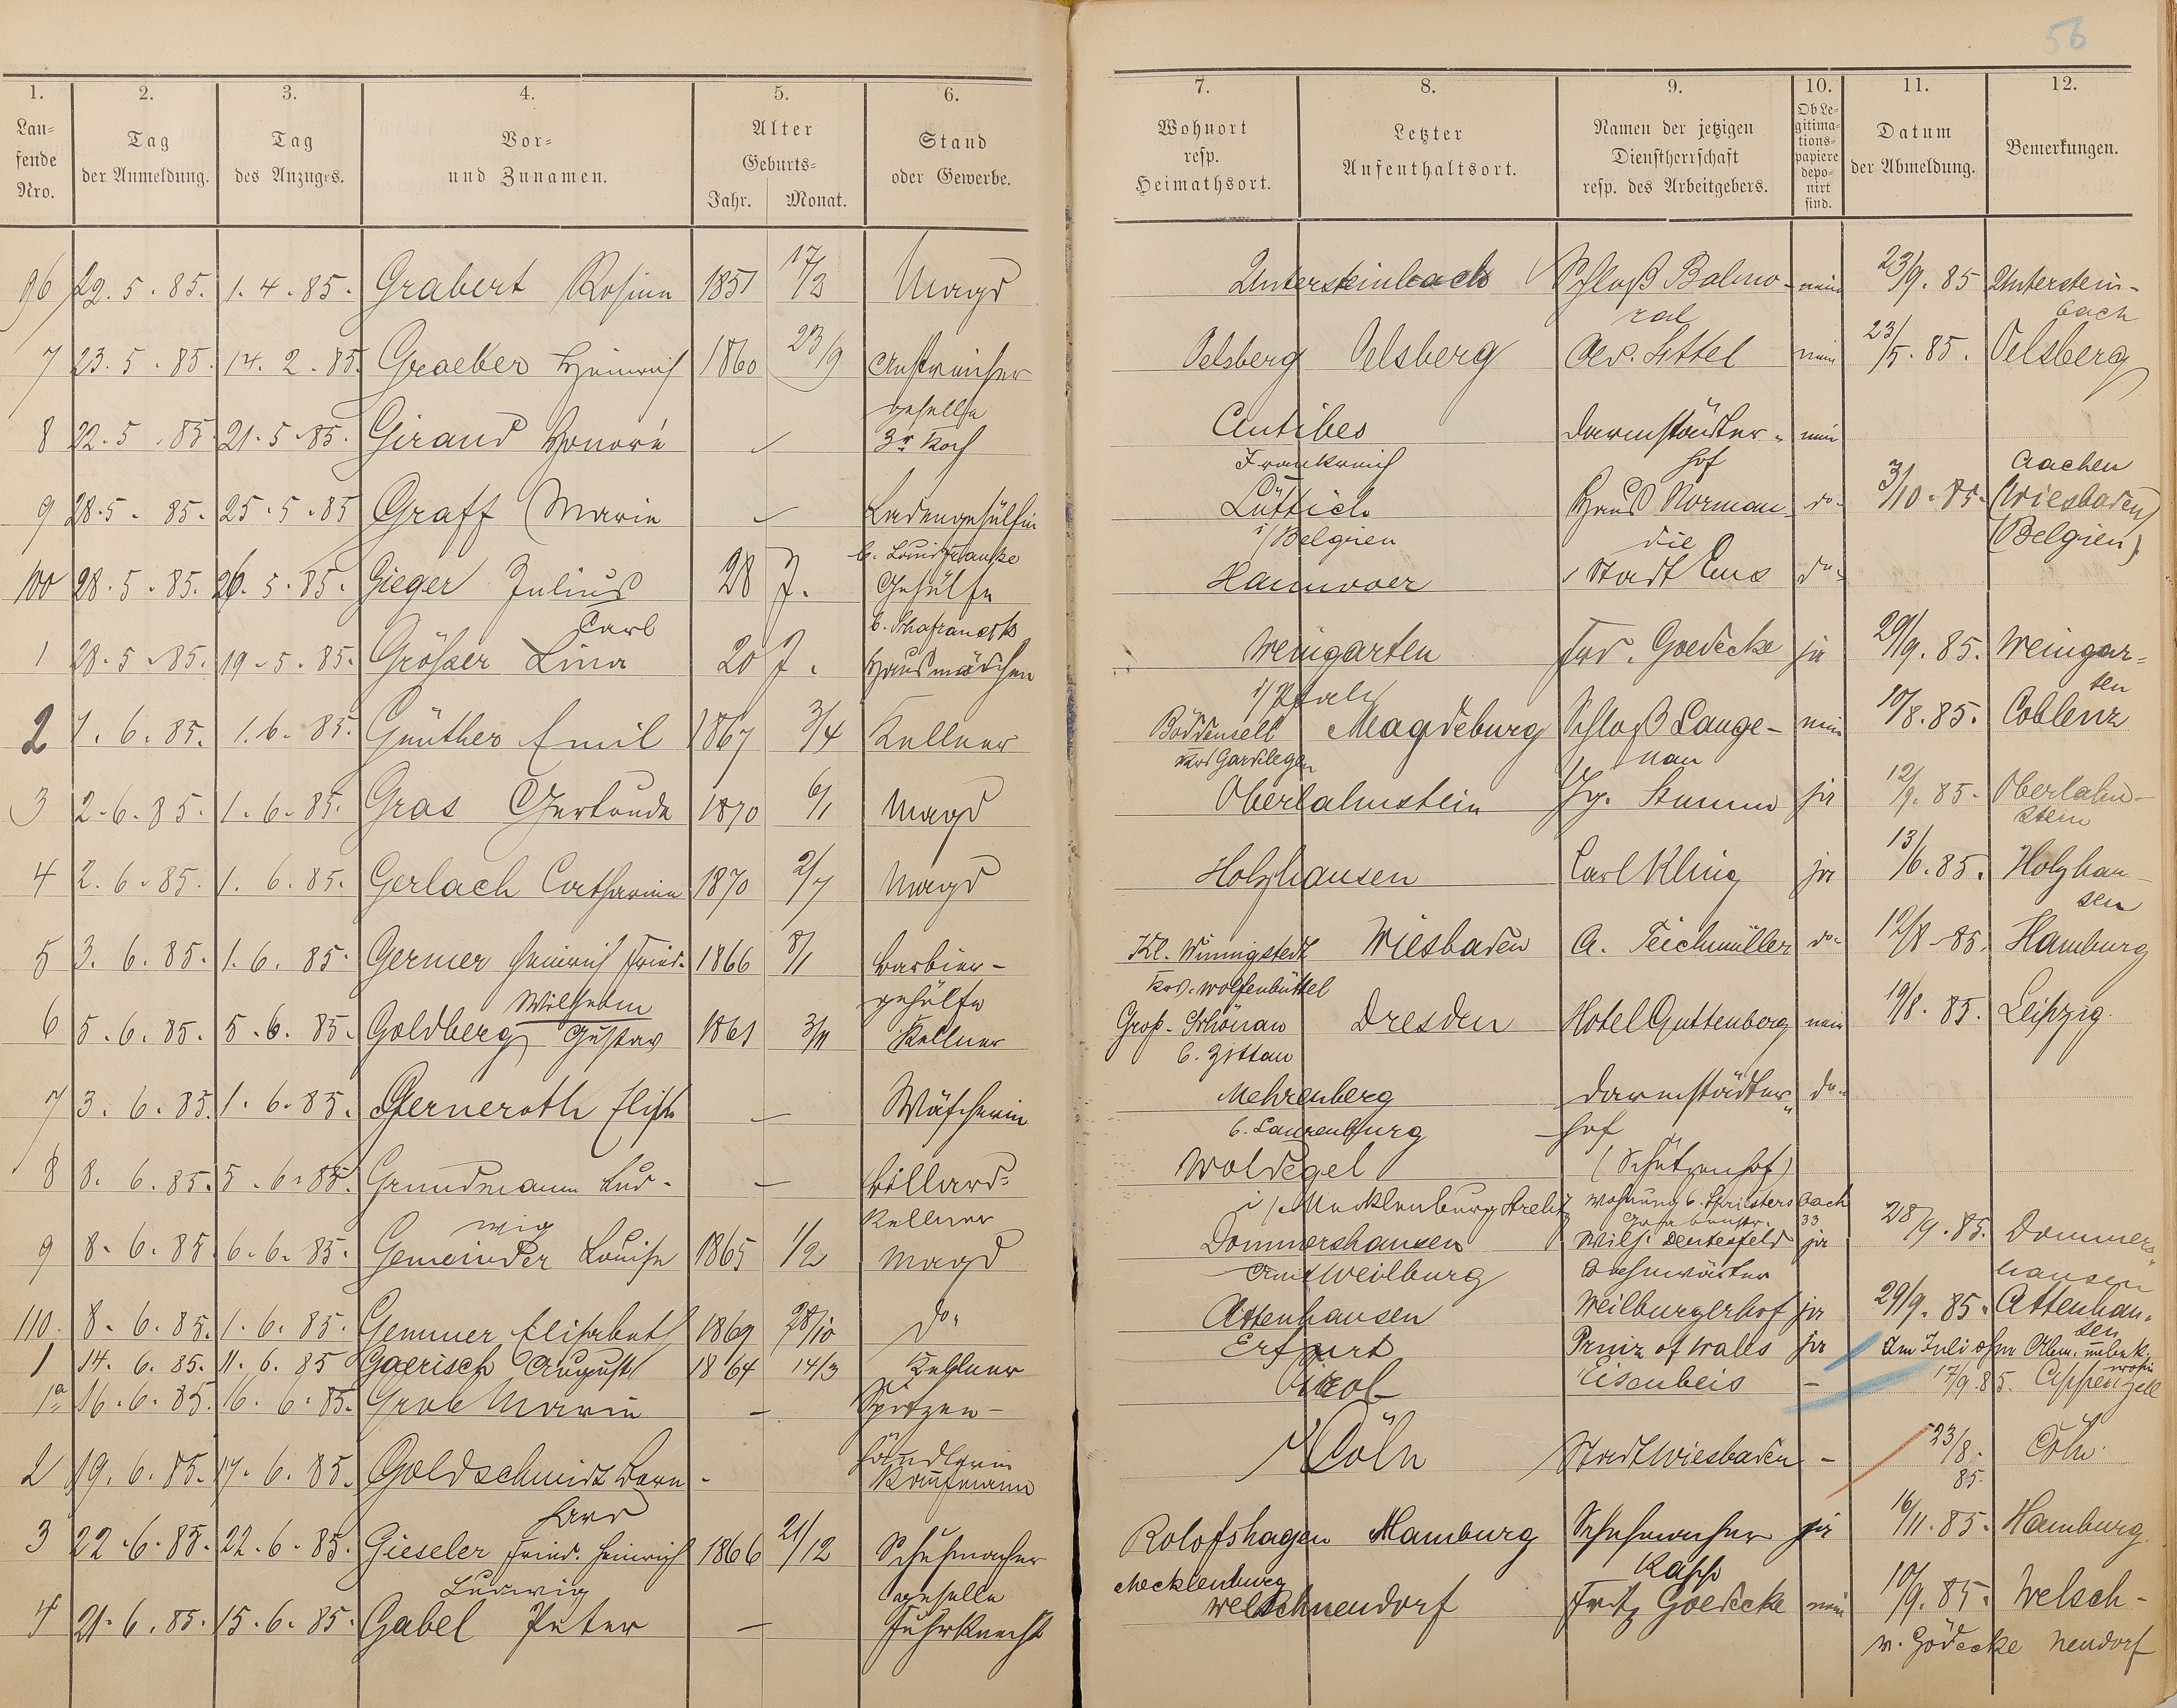 56
1. 2. 3. 4. 5. 6. 7. 8. 9. 10. 11. 12.
Laufende Nro. Tag der Anmeldung. Tag des Anzuges. Vor- und Zunamen. Alter Geburts- Jahr. Monat. Stand oder Gewerbe. Wohnort resp. Heimathsort. Letzter Aufenthaltsort. Namen der jetzigen Dienstherrschaft resp. des Arbeitgebers. Ob Legitimationspapiere deponirt sind. Datum der Abmeldung. Bemerkungen.
96 22. 5. 85. 1. 4. 85. Grabert Rosina 1851 17/3 Magd Untersteinbach Schloß Balmo- nein 23/9. 85 Unterstein-
ral bach
7 23. 5. 85. 14. 2. 85. Graeber Heinrich 1860 23/9 Anstreicher Oelsberg Oelsberg Adr. Sittel nein 23/5. 85. Oelsberg
geselle
8 22. 5. 85. 21. 5. 85. Girand Honoré – 3r Koch Antibes Darmstädter- nein
Frankreich hof Aachen
9 28. 5. 85. 25. 5. 85 Graff Marie – Ladengehülfin Lüttich Haus Norman- do. 3/10. 85. (Wiesbaden)
b. Louis Franke i/Belgien die (Belgien)
100 28. 5. 85. 26. 5. 85. Gieger Julius 28 J. Gehülfe Hannover Stadt Ems do.
Carl b. Schafranek
1 28. 5. 85. 19. 5. 85. Größer Lina 20 J. Hausmädchen Weingarten Frd. Goedecke ja 29/9. 85. Weingar-
i/Pfalz ten
2 1. 6. 85. 1. 6. 85. Günther Emil 1867 3/4 Kellner Böddensell Magdeburg Schloß Lange- nein 10/8. 85. Coblenz
Krs Gardelegen nau
3 2. 6. 85. 1. 6. 85. Gras Gertrude 1870 6/1 Magd Oberlahnstein Hy. Stumm ja 12/9. 85. Oberlahn-
stein
4 2. 6. 85. 1. 6. 85. Gerlach Catharina 1870 2/7 Magd Holzhausen Carl Kling ja 13/6. 85. Holzhau-
sen
5 3. 6. 85. 1. 6. 85. Germer Heinrich Fried. 1866 8/1 Barbier- Kl. Winnigstedt Wiesbaden A. Teichmüller do. 12/8. 85. Hamburg
Wilhelm gehülfe Krs. Wolfenbüttel
6 5. 6. 85. 5. 6. 85. Goldberg Gustav 1861 3/11 Kellner Groß-Schönau Dresden Hotel Guttenberg nein 19/8. 85. Leipzig.
b. Zittau
7 3. 6. 85. 1. 6. 85. Gerneroth Elise – Wäscherin Mehrenberg Darmstädter- do.
b. Laurenburg hof
8 8. 6. 85. 5. 6. 85. Grundmann Lud- – Billard- Woldegel (Schützenhof)
wig Kellner i/Mecklenburg Strelitz Wohnung b. Spriestersbach
33
9 8. 6. 85 6. 6. 85. Gemeinder Louise 1865 1/2 Magd Dommershausen Wilh. Deutesfeld ja 28/9. 85. Dommers-
Amt Weilburg Bahnwärter hausen
110. 8. 6. 85. 1. 6. 85. Gemmer Elisabeth 1869 28/10 do. Attenhausen Weilburgerhof ja 29/9. 85. Attenhau-
sen
1 14. 6. 85. 11. 6. 85 Gaerisch August 1864 14/3 Kellner Erfurt Prinz of Walls ja Im Juli ohne Abm. unbek.
wohin
1a 16. 6. 85. 16. 6. 85. Grob Marie – Spitzen- Tirol Eisenbeis – 17/9. 85. Appenzell
händlerin
2 19. 6. 85. 17. 6. 85. Goldschmidt Bern- - Kaufmann Cöln Stadt Wiesbaden – 23/8. 85. Cöln.
hard
3 22. 6. 85. 22. 6. 85. Gieseler Fried. Heinrich 1866 21/12 Schuhmacher Rolofshagen Hamburg Schuhmacher ja 16/11. 85. Hamburg.
Ludwig geselle Mecklenburg Kapp
4 21. 6. 85. 15. 6. 85. Gabel Peter – Fuhrknecht Welschneudorf Fritz Goedecke nein 10/9. 85. Welsch-
v. Gödecke neudorf